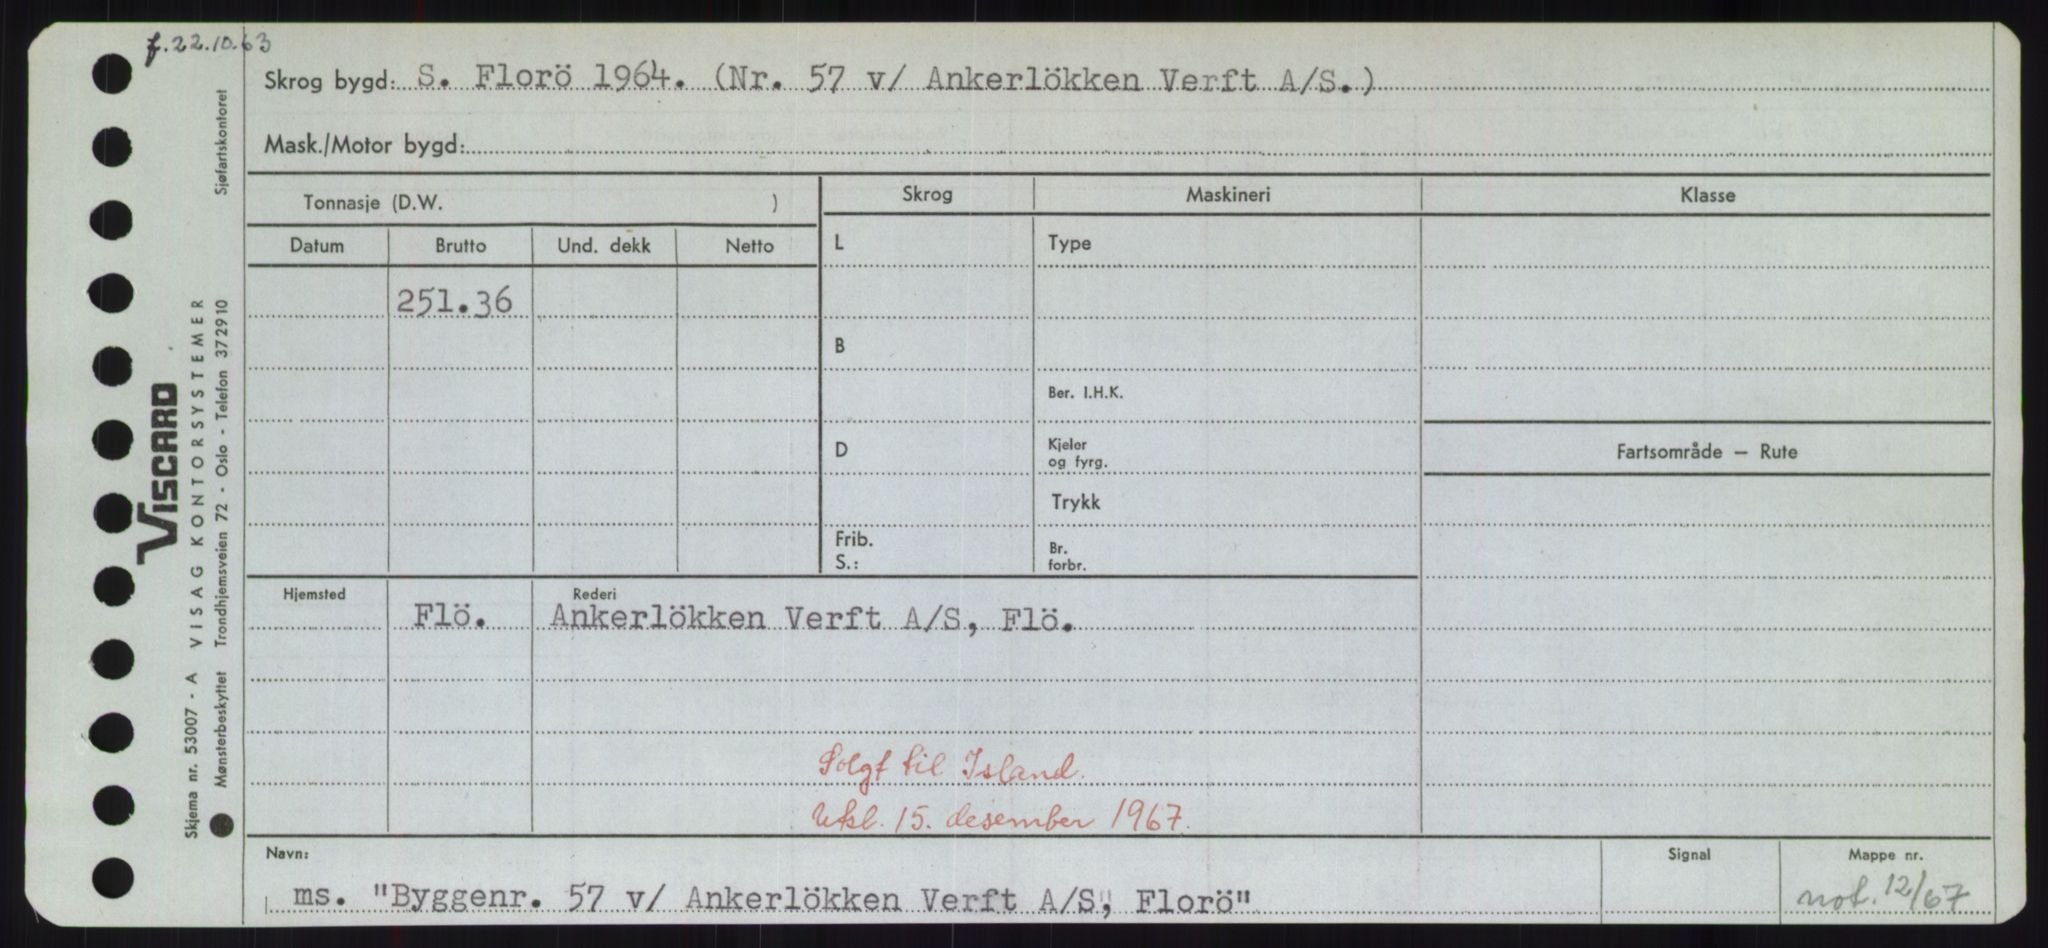 f. 22.10.63
Skrog bygd: S. Florö 1964. (Nr. 57 v/ Ankerlökken Verft A/S.)
Mask./Motor bygd:
Tonnasje (D.W. )
Skrog Maskineri Klasse
Datum Brutto Und. dekk Netto
L Type
251.36
B
Ber. I.H.K.
D Kjeler
og fyrg.
Fartsområde — Rute
Trykk
Frib.
S.:
Br.
forbr.
Hjemsted Rederi
Flö. Ankerlökken Verft A/S, Flö.
Solgt til Island.
Uksl. 15. desember 1967.
Navn: Signal Mappe nr.
ms. "Byggenr. 57 v/ Ankerlökken Verft A/S", Florö"
not. 12/67
VISCARD
Skjema nr. 53007 - A VISAG KONTORSYSTEMER
Mønsterbeskyttet Trondhjemsveien 72 - Oslo - Telefon 372910 Sjøfartskontoret